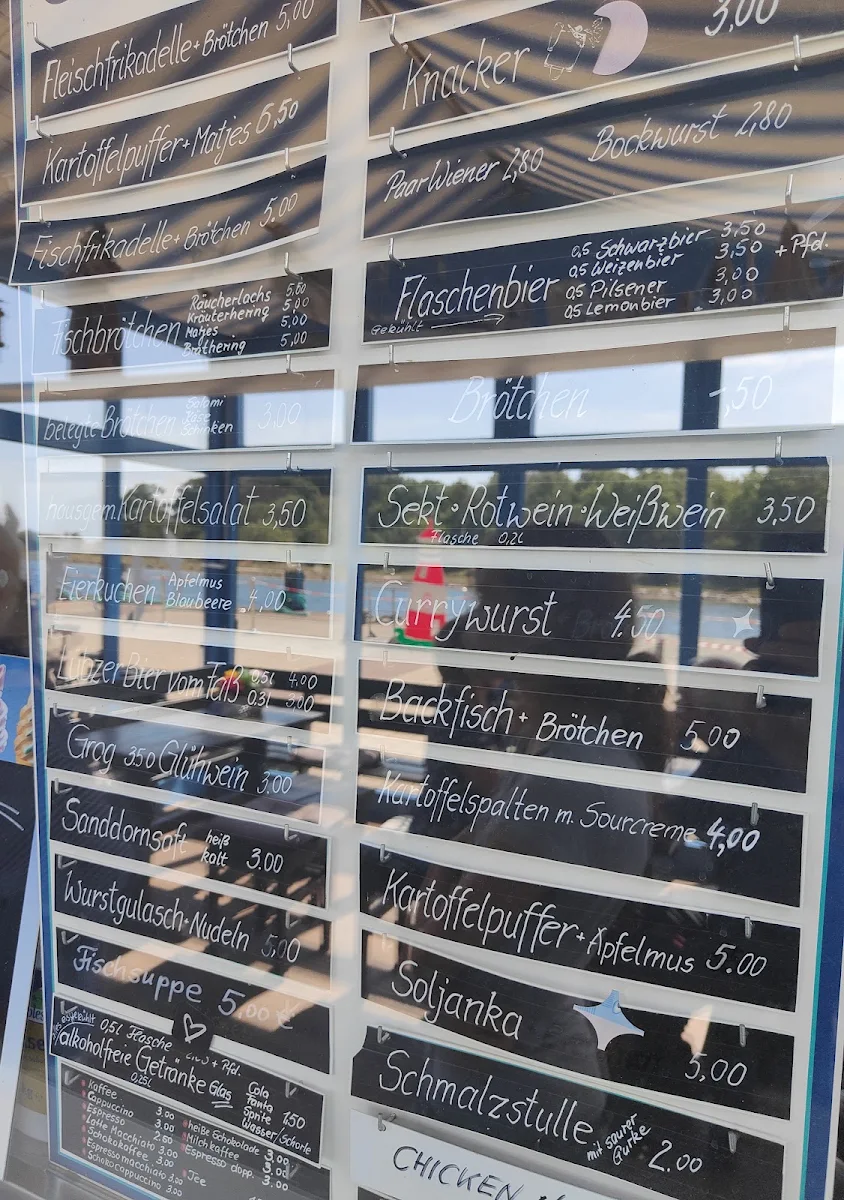 Fleischfrikadelle + Brötchen 5,00
Kartoffelpuffer + Matjes 6,50
Fischfrikadelle + Brötchen 5.00
Fischbrötchen
Räucherlachs 5,00
Kräuterhering 5,00
Matjes 5,00
Brathering 5,00
belegte Brötchen 3,00
Salami
Käse
Schinken
hausgem. Kartoffelsalat 3,50
Eierkuchen Apfelmus Blaubeere 4,00
Lübzer Bier vom Faß
0,5l 4.00
0,3l 3.00
Grog 3.50 Glühwein 3.00
Sanddornsaft heiß kalt 3.00
Wurstgulasch + Nudeln 5,00
Fischsuppe 5,00 €
gekühlt 0,5l Flasche + Pfd.
alkoholfreie Getränke Glas 0,25l
Cola
Fanta
Sprite
Wasser/Schorle
1.50
Kaffee 3.00
Cappuccino 3.00
Espresso 2.50
Latte Macchiato 3.00
Schokokaffee 3.00
Espresso macchiato 3.00
Schokocappuccino 3.00
heiße Schokolade 3.00
Milchkaffee 3.00
Espresso dopp. 3.00
3,00
Knacker
Paar Wiener 2,80 Bockwurst 2,80
Flaschenbier
Gekühlt
0,5 Schwarzbier 3,50
0,5 Weizenbier 3,50 + Pfd.
0,5 Pilsener 3,00
0,5 Lemonbier 3,00
Brötchen -,50
Sekt • Rotwein • Weißwein 3,50
Flasche 0,2l
Currywurst 4.50
Backfisch + Brötchen 5.00
Kartoffelspalten m. Sourcreme 4,00
Kartoffelpuffer + Apfelmus 5.00
Soljanka 5,00
Schmalzstulle mit saurer Gurke 2.00
CHICKEN